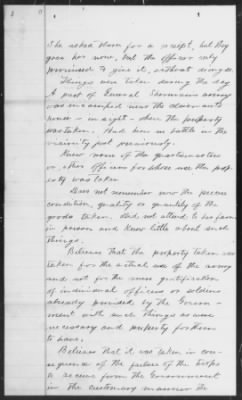 She asked them for a receipt, but they
gave her none, but the officer only
promised to give it, without doing so.
Things were taken during the day.
A part of General Sherman's army
was encamped near the claimant's
house - in sight - when the property
was taken. Had been a battle in the
vicinity just previously.
Knew none of the quartermasters
or other officers for whose use the prop-
erty was taken.
Does not remember now the precise
condition, quality or quantity of the
goods taken. Did not attend to her farm
in person and knew little about such
things.
Believes that the property taken was
taken for the actual use of the army
and not for the mere gratification
of individual officers or soldiers
already provided by the Govern-
ment with such things as were
necessary and properly for them
to have.
Believes that it was taken in con-
sequence of the failure of the troops
to receive from the Government
in the customary manner the